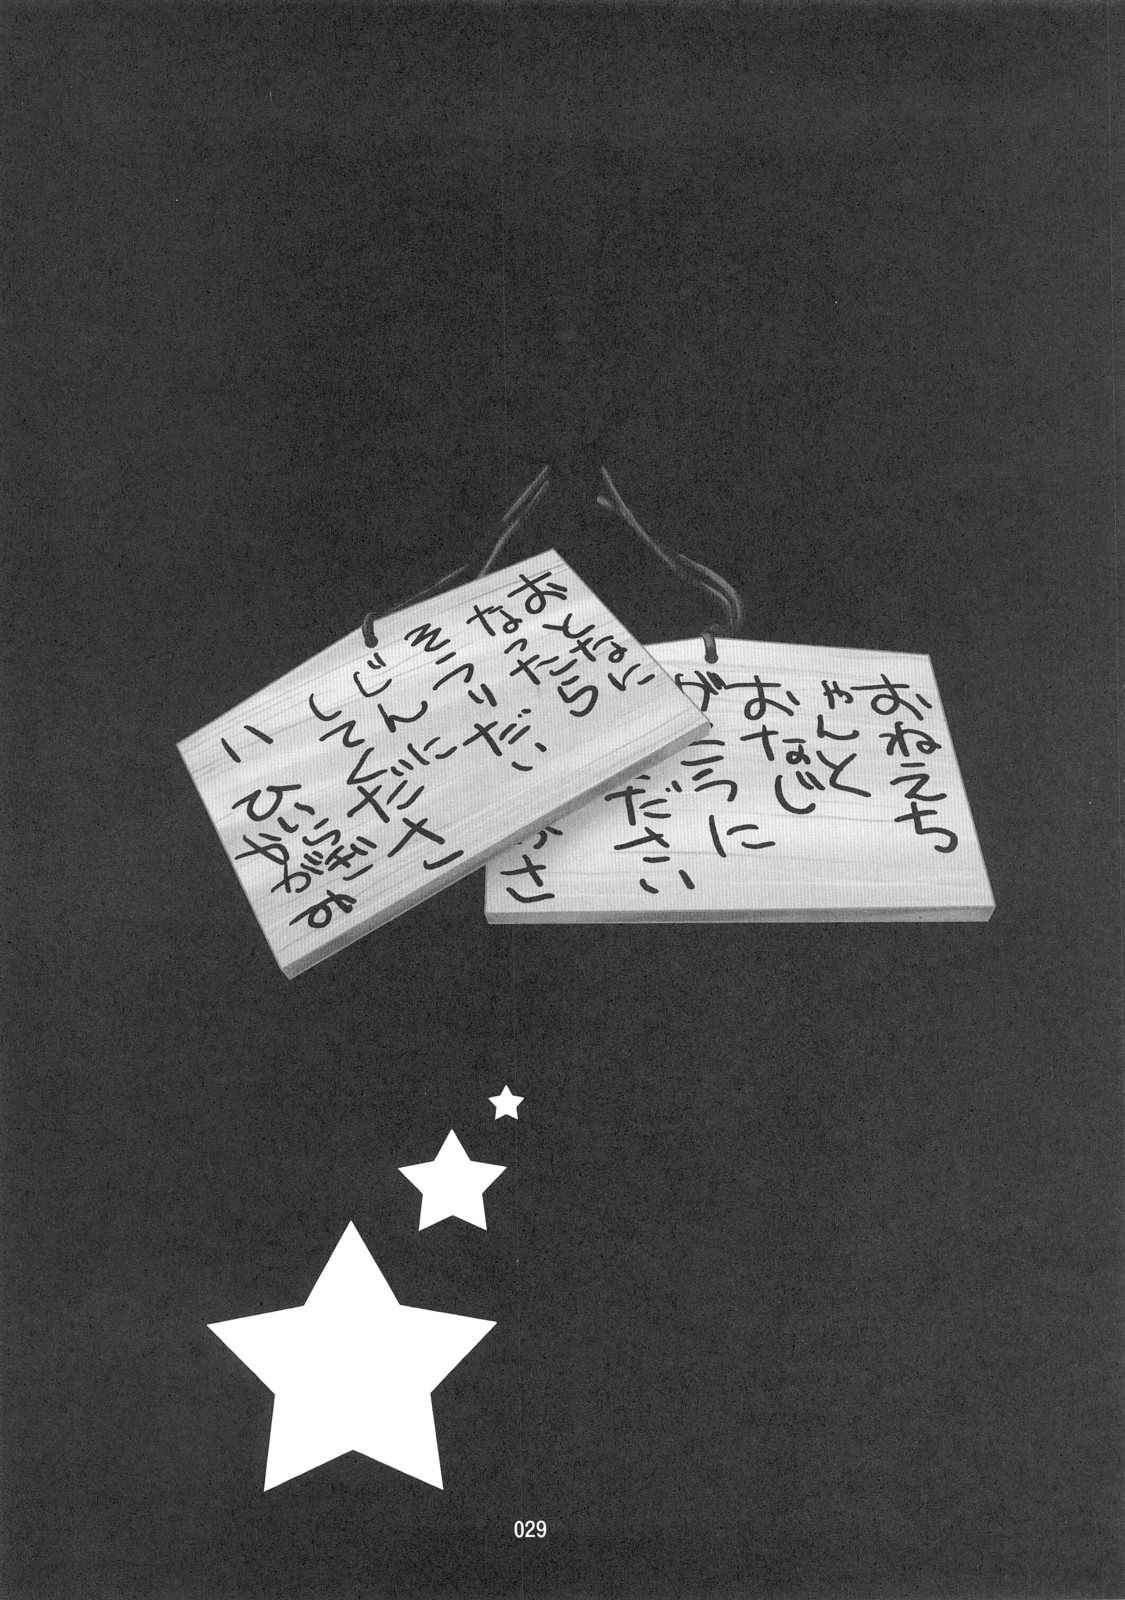 おとなに
なったら
そうりだい
じんに
してくださ
い
ひいらぎ
かがみ
おねえち
ゃんと
おなじ
が こうに
ださい
さ
029